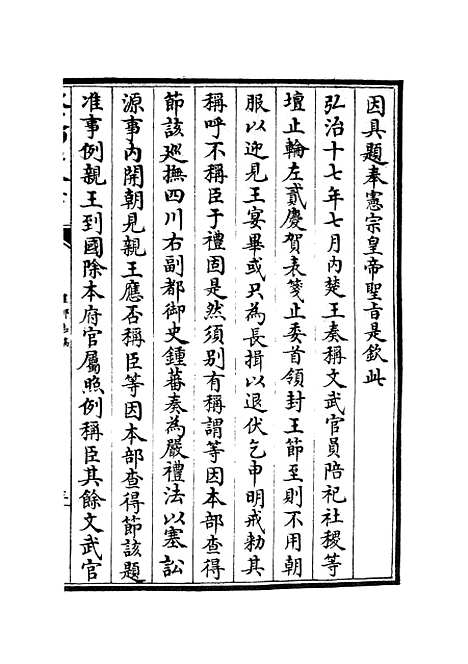 因具題奉憲宗皇帝聖旨是欽此
弘治十七年七月內楚王奏稱文武官員陪祀社稷等
壇止輪左貳慶賀表箋止委首領封王節至則不用朝
服以迎見王宴畢或只為長揖以退伏乞申明戒勅其
稱呼不稱臣于禮固是然須別有稱謂等因本部查得
節該廵撫四川右副都御史鍾蕃奏為嚴禮法以塞訟
源事內開朝見親王應否稱臣等因本部查得節該題
准事例親王到國除本府官屬照例稱臣其餘文武官